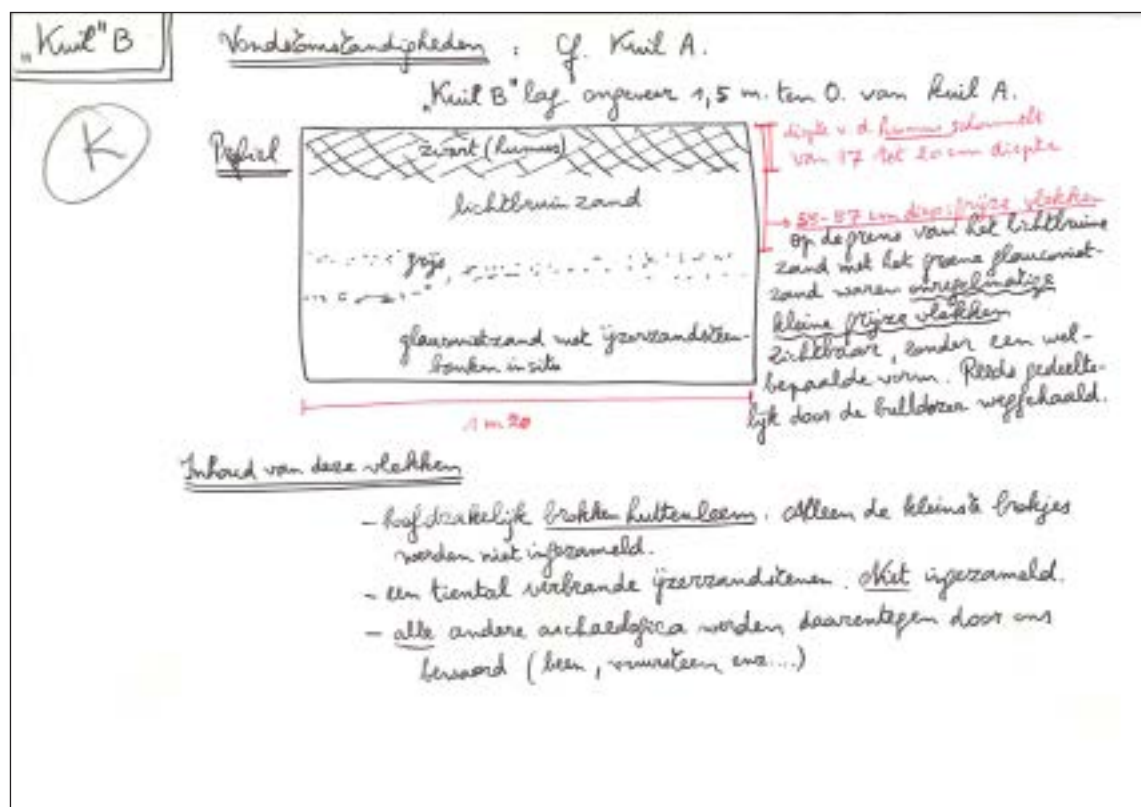 „Kuil" B
Vondstomstandigheden : Cf. Kuil A.
„Kuil B" lag ongeveer 1,5 m. ten O. van kuil A.
K
Profiel
zwart (humus)
lichtbruin zand
grijs
glauconietzand met ijzerzandsteen-
banken in situ
1 m 20
diepte v. d. humus schommelt
van 17 tot 20 cm diepte
cm diep: grijze vlekken
op de grens van het lichtbruine
zand met het groene glauconiet-
zand waren onregelmatige
kleine grijze vlekken
zichtbaar, zonder een wel-
bepaalde vorm. Reeds gedeelte-
lijk door de bulldozer weggehaald.
Inhoud van deze vlekken
- hoofdzakelijk brokken huttenleem. Alleen de kleinste brokjes
werden niet ingezameld.
- een tiental verbrande ijzerzandstenen. Niet ingezameld.
- alle andere archaeologica werden daarentegen door ons
bewaard (been, vuursteen enz....)